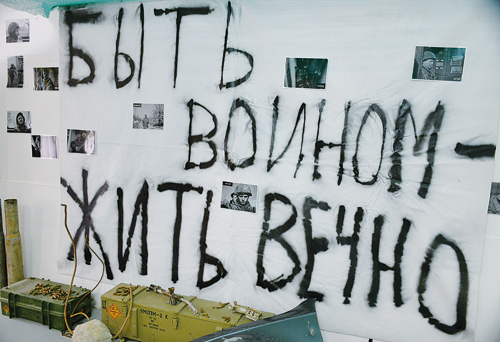 БЫТЬ
ВОИНОМ–
ЖИТЬ ВЕЧНО